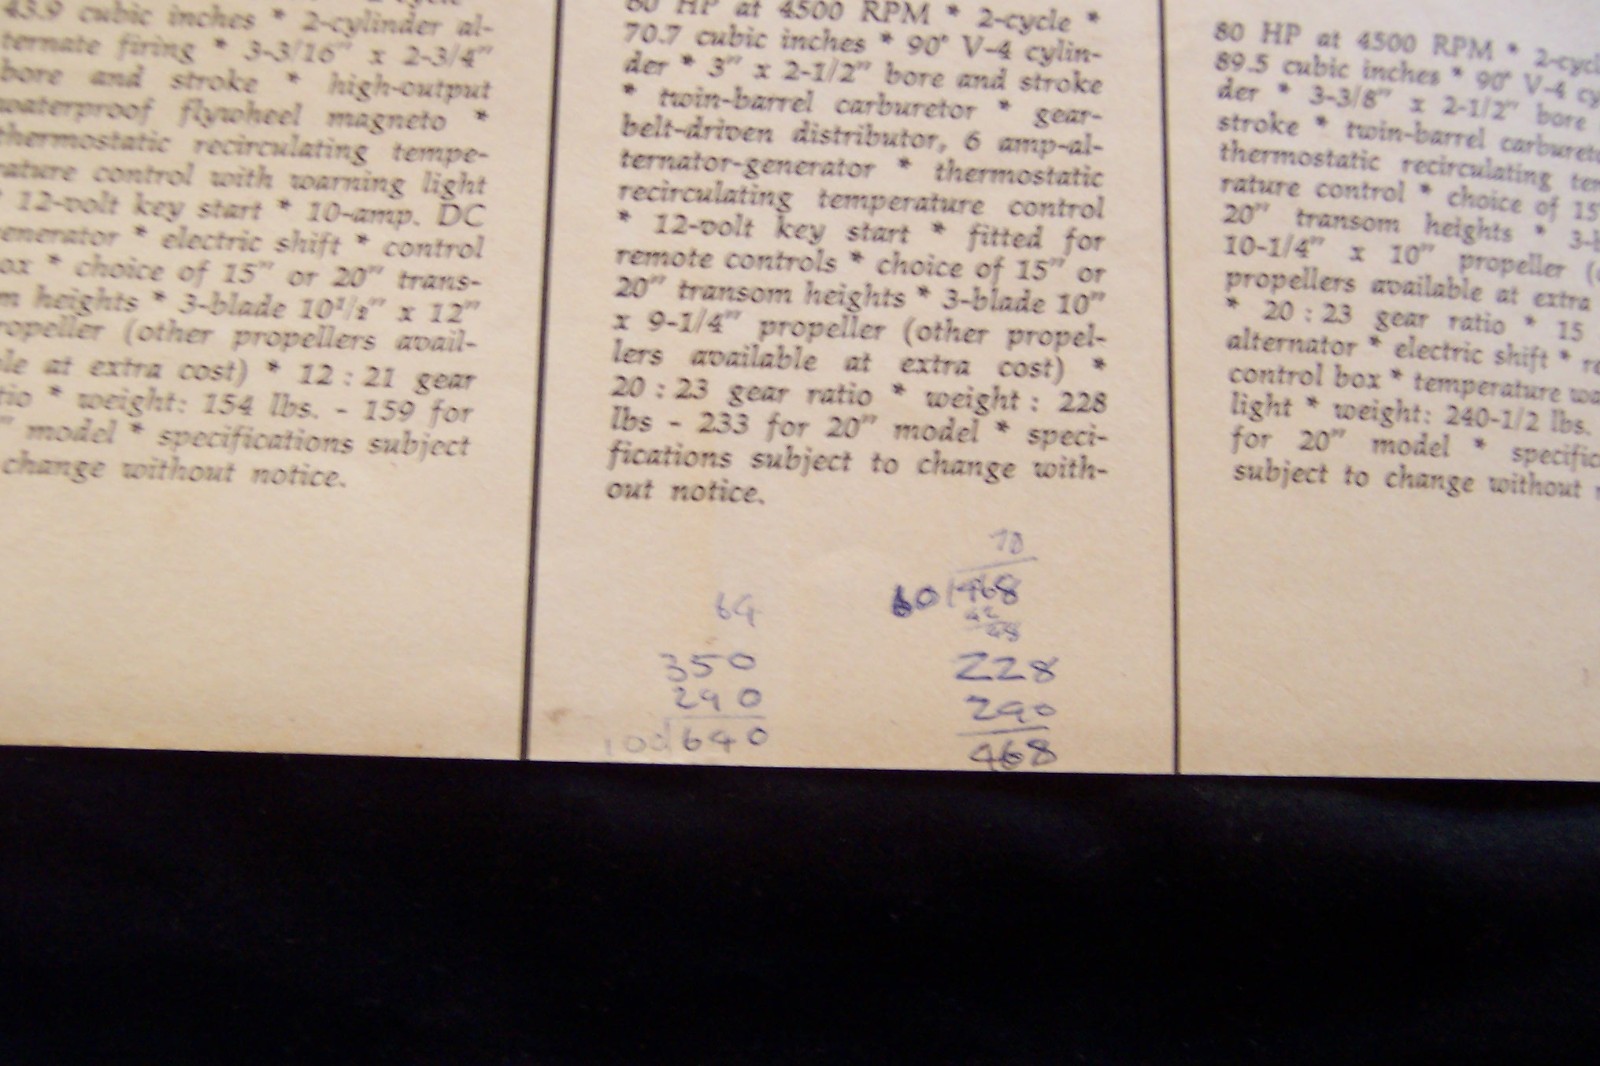 43.9 cubic inches * 2-cylinder al-
ternate firing * 3-3/16" x 2-3/4"
bore and stroke * high-output
waterproof flywheel magneto *
thermostatic recirculating tempe-
rature control with warning light
* 12-volt key start * 10-amp. DC
enerator * electric shift * control
ox * choice of 15" or 20" trans-
m heights * 3-blade 10½" x 12"
ropeller (other propellers avail-
le at extra cost) * 12 : 21 gear
tio * weight: 154 lbs. - 159 for
" model * specifications subject
change without notice.
60 HP at 4500 RPM * 2-cycle *
70.7 cubic inches * 90° V-4 cylin-
der * 3" x 2-1/2" bore and stroke
* twin-barrel carburetor * gear-
belt-driven distributor, 6 amp-al-
ternator-generator * thermostatic
recirculating temperature control
* 12-volt key start * fitted for
remote controls * choice of 15" or
20" transom heights * 3-blade 10"
x 9-1/4" propeller (other propel-
lers available at extra cost) *
20 : 23 gear ratio * weight : 228
lbs - 233 for 20" model * speci-
fications subject to change with-
out notice.
64
350
290
100 640
60 468
42
48
228
240
468
80 HP at 4500 RPM * 2-cycl
89.5 cubic inches * 90° V-4 cy
der * 3-3/8" x 2-1/2" bore
stroke * twin-barrel carbureto
thermostatic recirculating ten
rature control * choice of 15
20" transom heights * 3-b
10-1/4" x 10" propeller (
propellers available at extra
* 20 : 23 gear ratio * 15
alternator * electric shift * re
control box * temperature wa
light * weight: 240-1/2 lbs.
for 20" model * specific
subject to change without